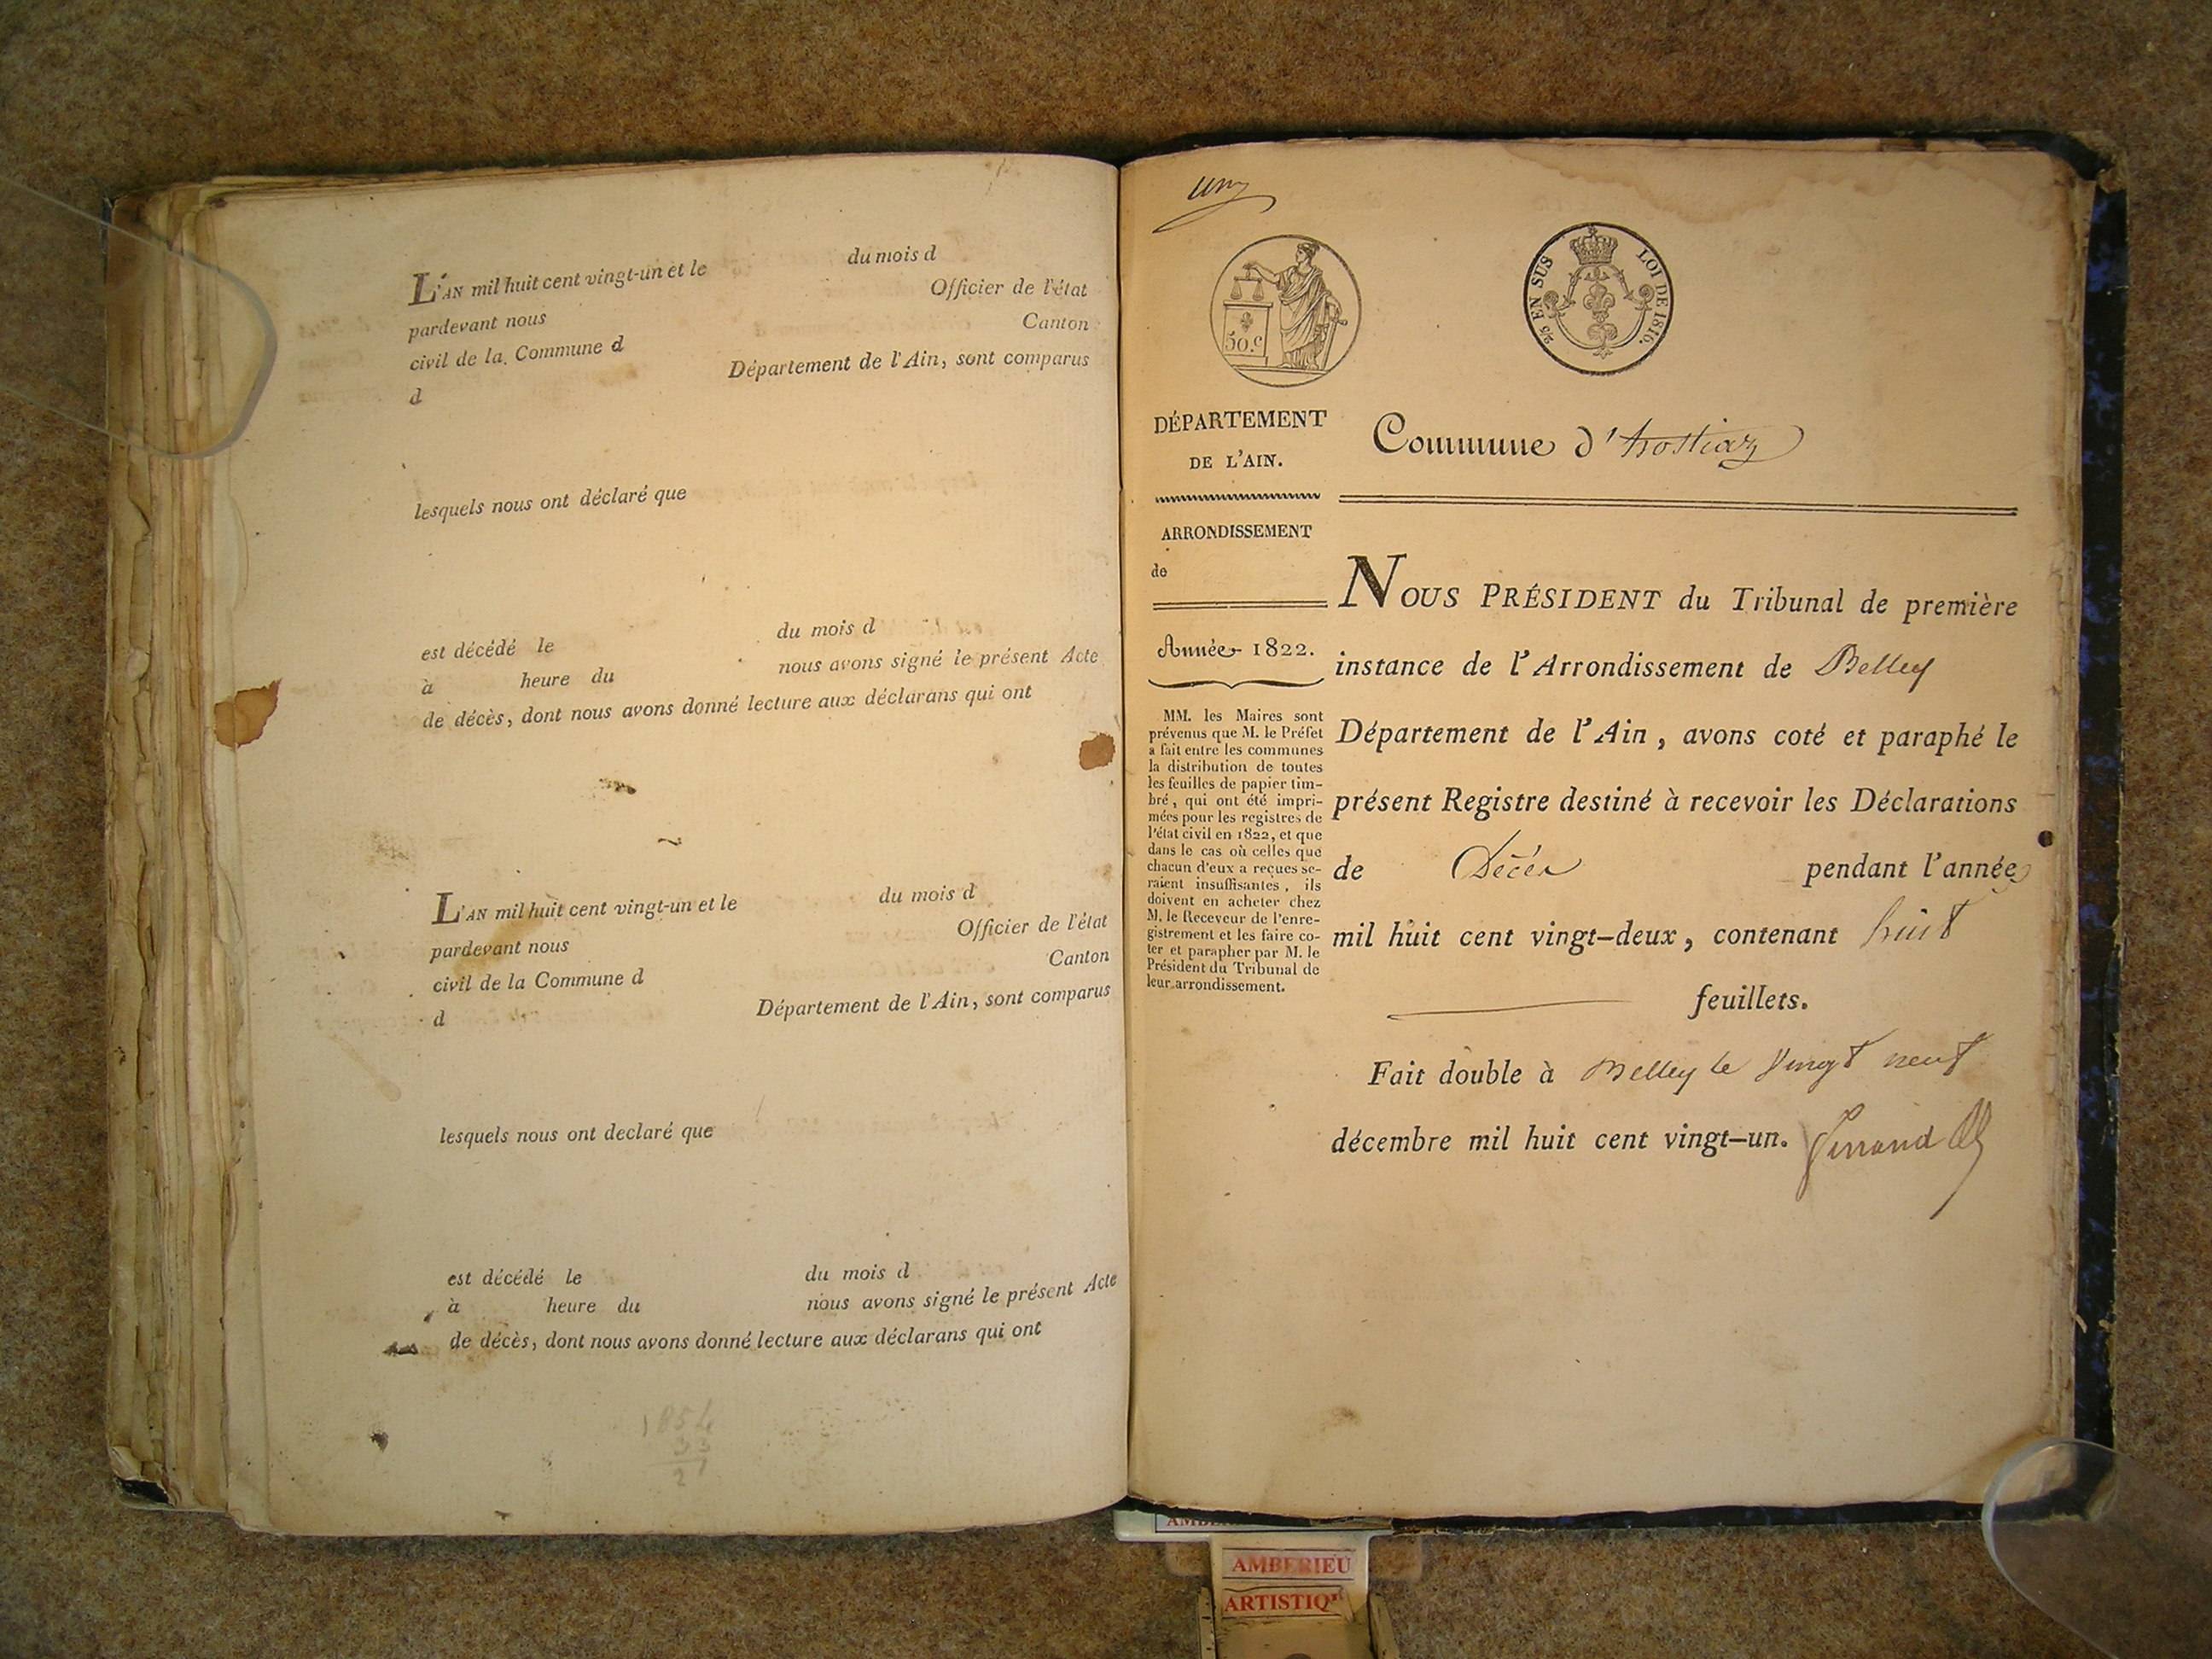 L'AN mil huit cent vingt-un et le du mois d
pardevant nous Officier de l'état
civil de la Commune d Canton
d Département de l'Ain, sont comparus
lesquels nous ont déclaré que
est décédé le du mois d
à heure du nous avons signé le présent Acte
de décès, dont nous avons donné lecture aux déclarans qui ont
L'AN mil huit cent vingt-un et le du mois d
pardevant nous Officier de l'état
civil de la Commune d Canton
d Département de l'Ain, sont comparus
lesquels nous ont declaré que
est décédé le du mois d
à heure du nous avons signé le présent Acte
de décès, dont nous avons donné lecture aux déclarans qui ont
1854
33
21
un
50.c
2/5 EN SUS LOI DE 1816.
DÉPARTEMENT
DE L'AIN.
Commune d'hostiaz
ARRONDISSEMENT
de
Année 1822.
MM. les Maires sont
prévenus que M. le Préfet
a fait entre les communes
la distribution de toutes
les feuilles de papier tim-
bré, qui ont été impri-
mées pour les registres de
l'état civil en 1822, et que
dans le cas où celles que
chacun d'eux a reçues se-
raient insuffisantes, ils
doivent en acheter chez
M. le Receveur de l'enre-
gistrement et les faire co-
ter et parapher par M. le
Président du Tribunal de
leur arrondissement.
NOUS PRÉSIDENT du Tribunal de première
instance de l'Arrondissement de Belley
Département de l'Ain, avons coté et paraphé le
présent Registre destiné à recevoir les Déclarations
de Décès pendant l'année
mil huit cent vingt-deux, contenant huit
feuillets.
Fait double à Belley le vingt neuf
décembre mil huit cent vingt-un.
AMBERIEU
ARTISTIQ